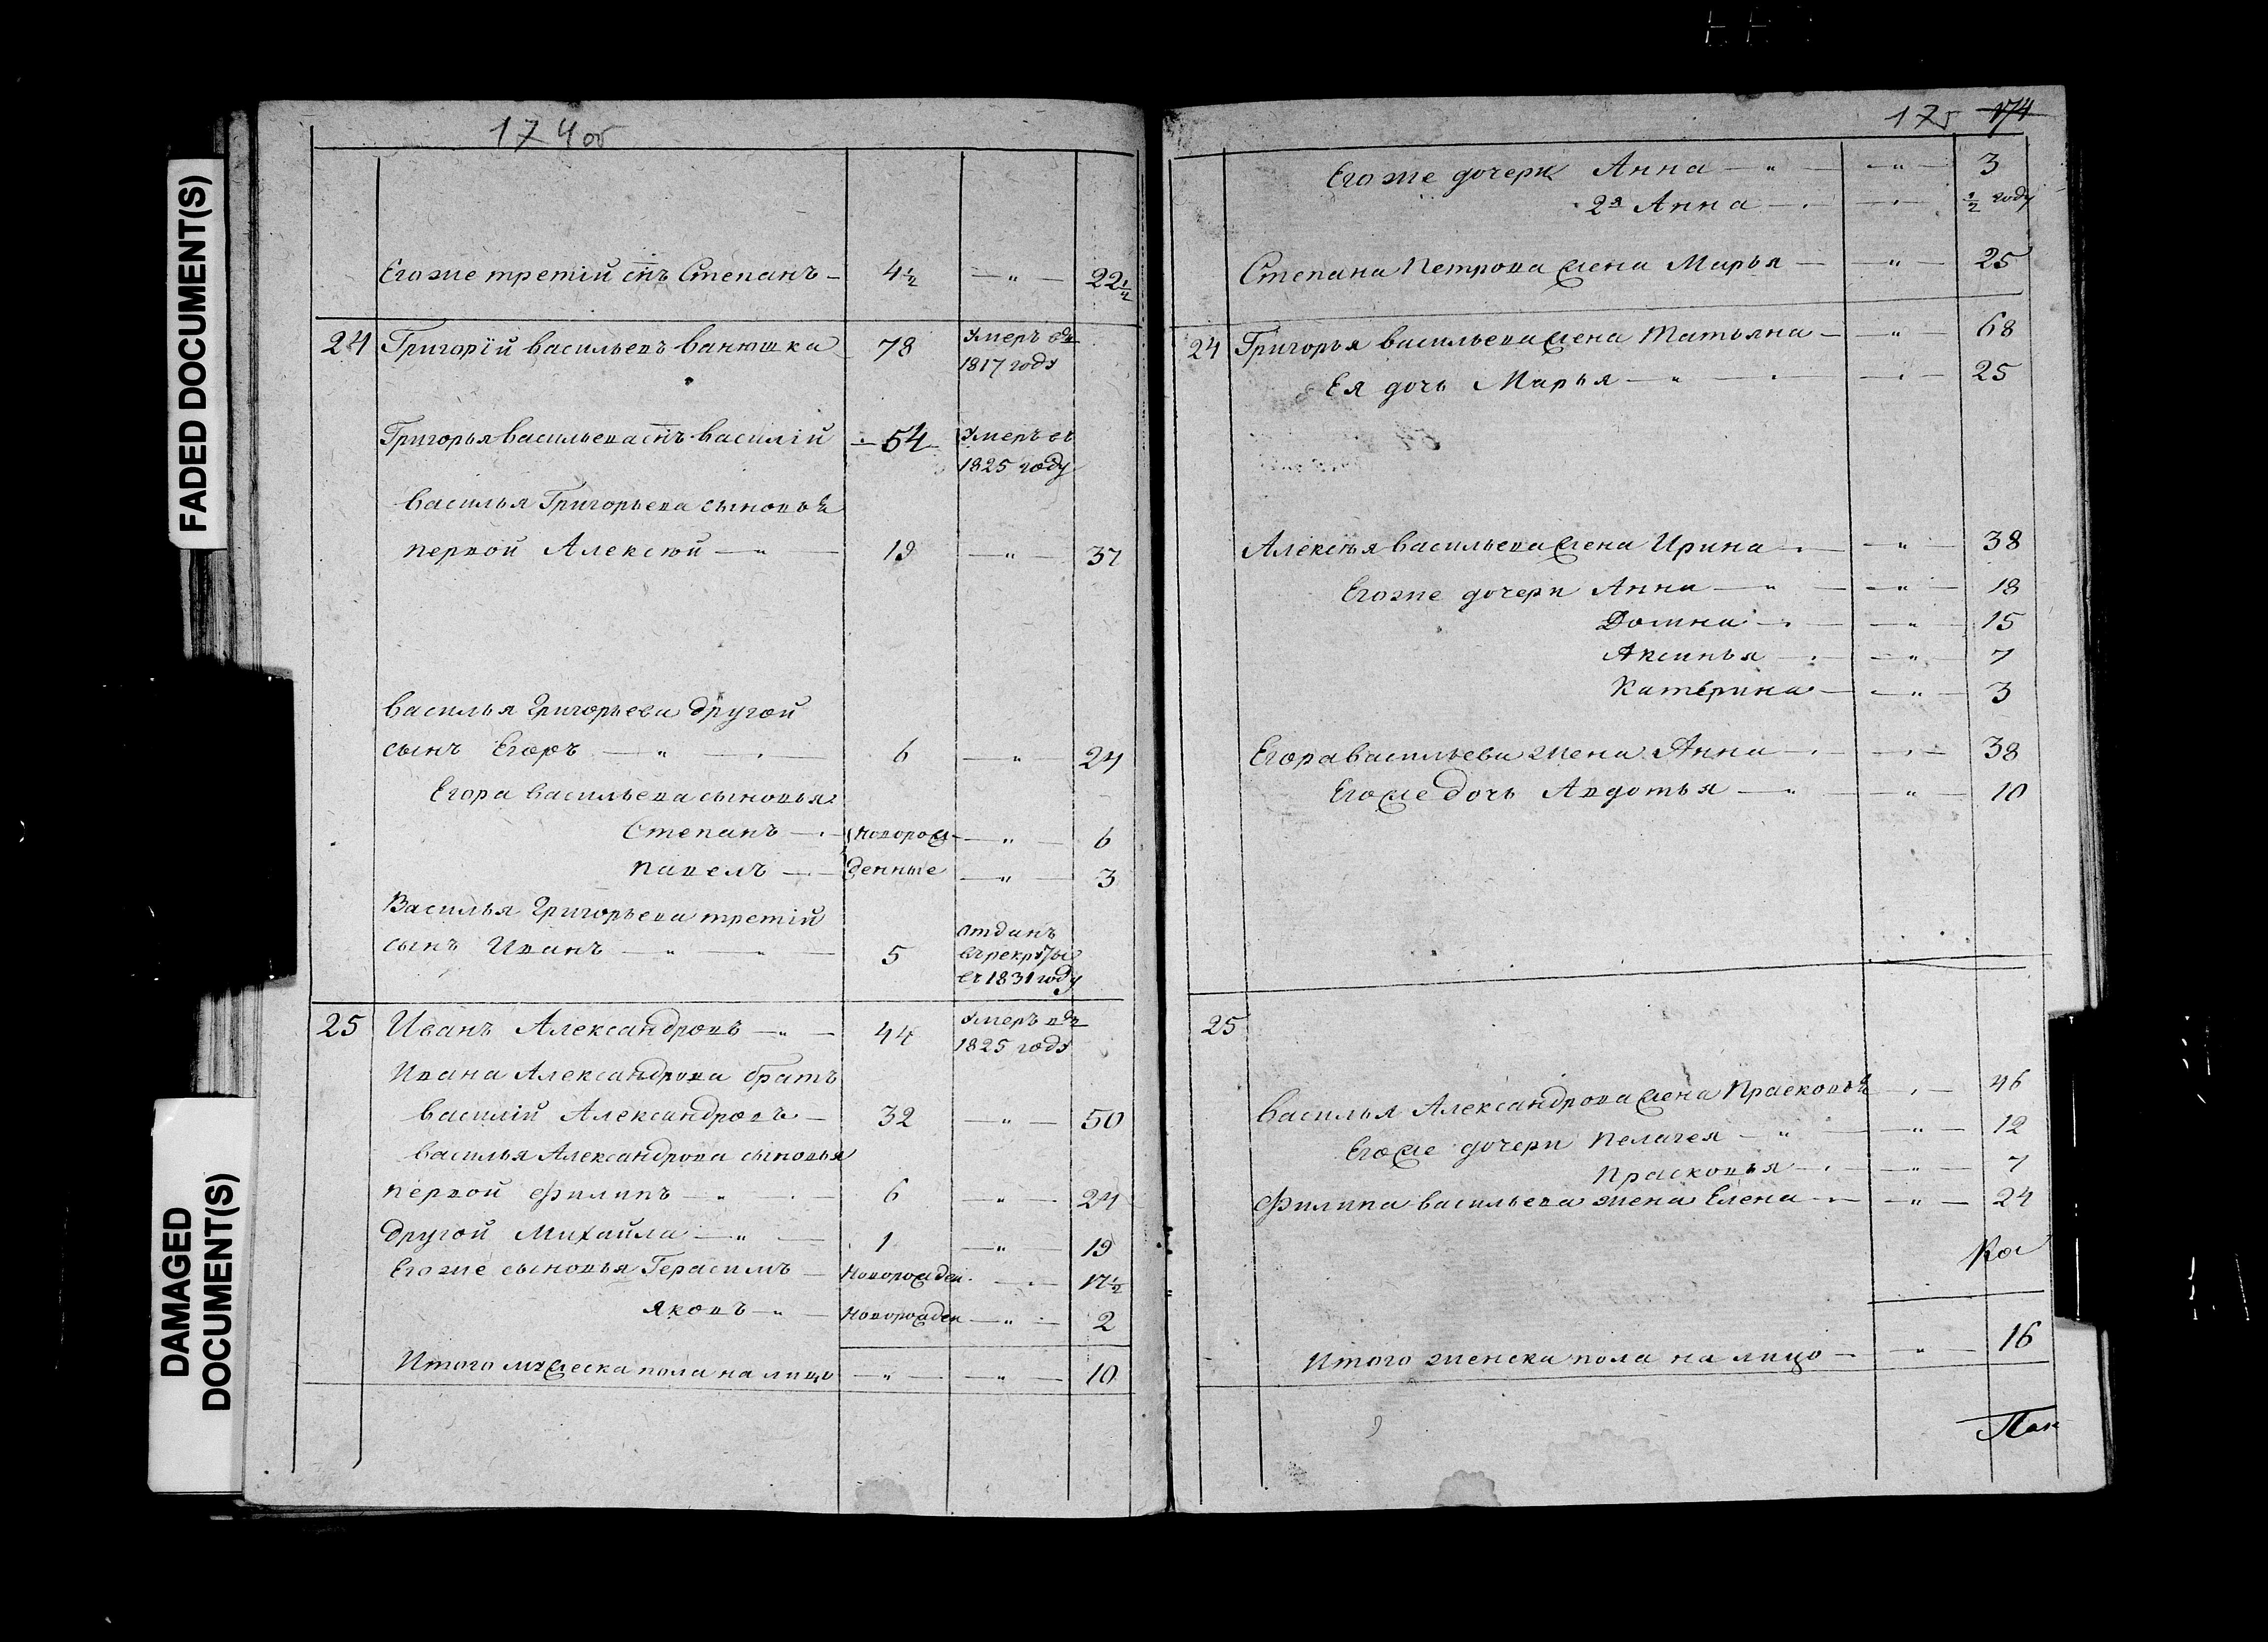 FADED DOCUMENT(S)
DAMAGED
DOCUMENT(S)
174об
Его же третій снъ Степанъ 4½ 22½
24 Григорій Васильевъ Ванюшка 78 Умеръ въ
1817 годѹ
Григорья Васильева снъ Василій 54 Умеръ въ
1825 году
Василья Григорьева сыновьѧ
первой Алексѣй 19 37
Василья Григорьева другой
сынъ Егоръ 6 24
Егора Васильева сыновья
Степанъ новорож- 6
Павелъ денные 3
Василья Григорьева третій
сынъ Иванъ 5
отданъ
въ рекруты
въ 1831 году
25 Иванъ Александровъ 44 Умеръ въ
1825 годѹ
Ивана Александрова братъ
Василій Александровъ 32 50
Василья Александрова сыновья
первой Филипъ 6 24
другой Михайла 1 19
Его же сыновья Герасимъ новорожден. 17½
Яковъ новорожден 2
Итого мѹжеска пола на лицо 10
175 174
Его же дочери Анна 3
2я Анна ½ году
Степана Петрова жена Марья 25
24 Григорья Васильева жена Татьяна 68
Ея дочь Марья 25
Алексѣя Васильева жена Ирина 38
Его же дочери Анна 18
Домна 15
Аксинья 7
Катерина 3
Егора Васильева жена Анна 38
Его же дочь Авдотья 10
25
Василья Александрова жена Прасковьѧ 46
Его же дочери Пелагея 12
Прасковья 7
Филипа Васильева жена Елена 24
Итого женска пола на лицо 16